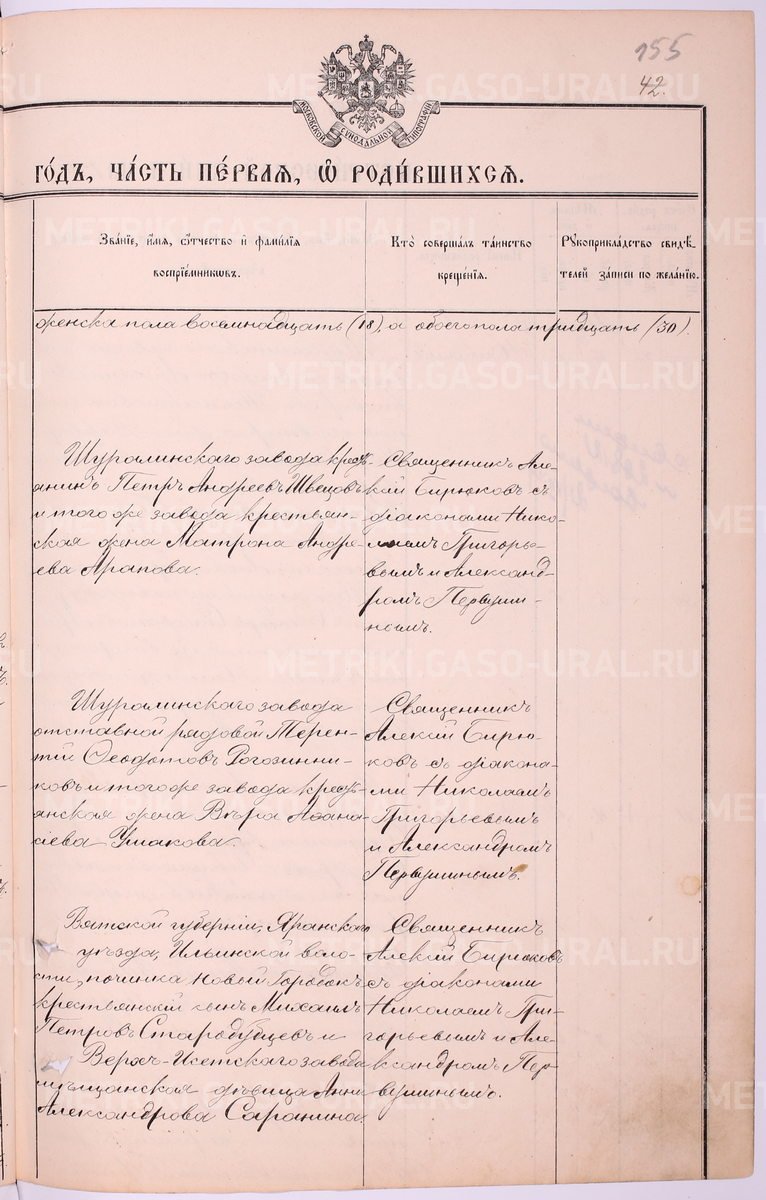 155
42.
METRIKI.GASO-URAL.RU
МОСКОВСКОЙ СѴНОДАЛЬНОЙ ТИПОГРАФІИ
ГО́ДЪ, ЧА́СТЬ ПЕ́РВАЯ, Ѽ РОДИ́ВШИХСЯ.
Зва́нїе, и҆́мя, ѻ҆́тчество и҆ фами́лїя
воспрїе́мникѡвъ.
Кто̀ соверша́лъ та́инство
креще́нїя.
Рꙋкоприкла́дство свидѣ́-
телей за́писи по жела́нїю.
женска пола восемнадцать (18), а обоего пола тридцать (30).
Шуралинскаго завода кресть-
янинъ Петръ Андреевъ Швецовъ
и того же завода крестьян-
ская жена Матрона Андре-
ева Арапова.
Священникъ Але-
ксій Бирюковъ съ
діаконами Нико-
лаемъ Григорье-
вымъ и Александ-
ромъ Первуши-
нымъ.
Шуралинскаго завода
отставной рядовой Терен-
тій Ѳеодотовъ Рогозинни-
ковъ и того же завода кресть-
янская жена Вѣра Аѳана-
сіева Ушакова.
Священникъ
Алексій Бирю-
ковъ съ діакона-
ми Николаемъ
Григорьевымъ
и Александромъ
Первушинымъ.
Вятской губерніи, Яранскаго
уѣзда, Ильинской воло-
сти, починка Новый Городокъ
крестьянскій сынъ Михаилъ
Петровъ Стародубцевъ и
Верхъ-Исетскаго завода
мѣщанская дѣвица Анна
Александрова Саранина.
Священникъ
Алексій Бирюковъ
съ діаконами
Николаемъ Гри-
горьевымъ и Але-
ксандромъ Пер-
вушинымъ.